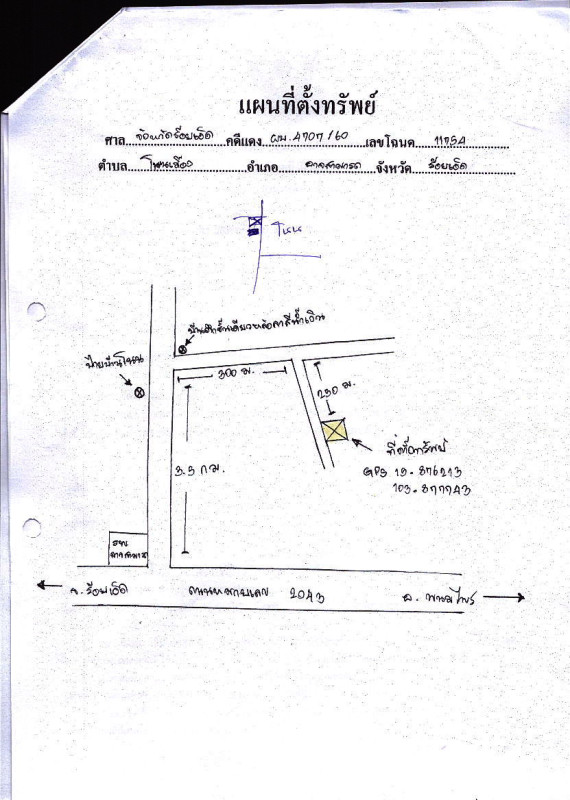 แผนที่ตั้งทรัพย์
ศาล จังหวัดร้อยเอ็ด คดีแดง ผบ.4707/60 เลขโฉนด 11754
ตำบล โหนเมือง อำเภอ อาจสามารถ จังหวัด ร้อยเอ็ด
โนน
บ้านตึกชั้นเดียวหลังคาสีน้ำเงิน
ป้ายบ้านโนน
300 ม.
250 ม.
3.5 กม.
ที่ตั้งทรัพย์
GPS 15.876213
103.877743
รพ.
อาจสามารถ
จ.ร้อยเอ็ด ถนนหมายเลข 2043 อ. พนมไพร